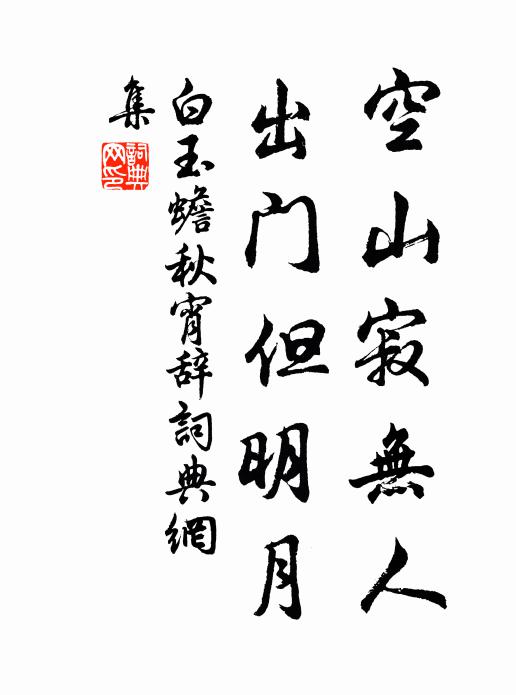 空山寂無人
出门但明月
白玉蟾秋宵辞詞典網
集
詞典
网印